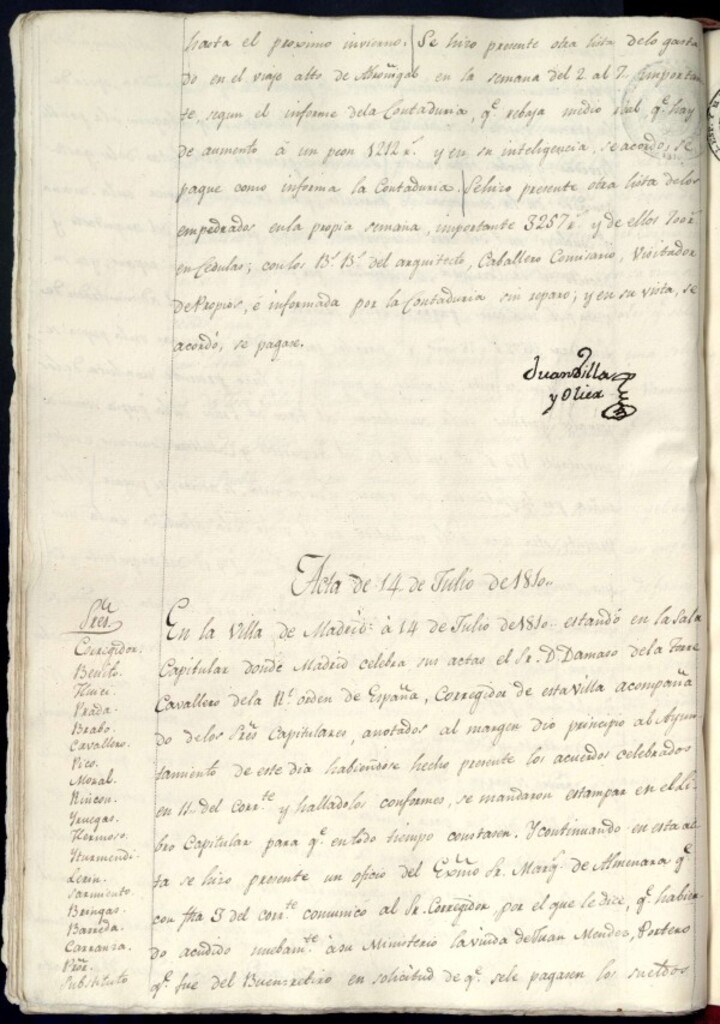 hasta el proximo invierno. Se hizo presente otra lista delo gasta
do en el viaje alto de en la semana del 2 al 7. importan
te, segun el informe dela Contaduria, qᵉ rebaja medio real qᵉ hay
de aumento á un peon 1212 rˢ. y en su inteligencia, se acordó, se
pague como informa la Contaduria. Se hizo presente otra lista de los
empedrados en la propia semana, importante 3257 rˢ. y de ellos 700 rˢ
en Cedulas; con los Vˢ. Bˢ. del arquitecto, Caballero Comisario, Visitador
de Propios, é informada por la Contaduria sin reparo; y en su vista, se
acordó, se pagase.
Juan Villa
y Olier
Acta de 14 de Julio de 1810..
Sʳᵉˢ
Corregidor.
Benito.
Prada.
Brabo.
Cavallero.
Pico.
Moral.
Rincon.
Yruegas.
Hermoso.
Yturmendi.
Lerin.
Sarmiento.
Bringas.
Barreda.
Carranza.
Pʳᵒʳ.
Substituto
En la Villa de Madrid á 14 de Julio de 1810.. estando en la Sala
Capitular donde Madrid celebra sus actas el Sr. D. Damaso dela Torre
Cavallero dela Rˡ orden de España, Corregidor de esta Villa acompaña
do delos Sʳᵉˢ Capitulares, anotados al margen dió principio al Ayun
tamiento de este dia habiendose hecho presente los acuerdos celebrados
en 11.. del Corrᵗᵉ y halladolos conformes, se mandaron estampar en el Li
bro Capitular para qᵉ en todo tiempo constasen. Y continuando en esta ac
ta se hizo presente un oficio del Exmo Sr. Marqˢ. de Almenara qᵉ
con fha 3 del corrᵗᵉ comunicó al Sr. Corregidor, por el que le dice, qᵉ habien
do acudido nuebamᵗᵉ á su Ministerio la viuda de Juan Mendez, Portero
qᵉ fue del Buen-retiro en solicitud de qᵉ sele pagasen los sueldos